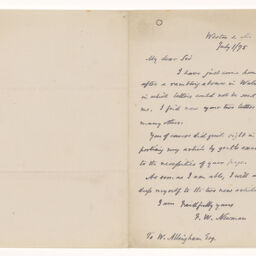 Weston s. M.
July 1/75
My dear Sir
I have just come home
after a rambling absence in Wales
in which letters could not be sent
me. I find now your two letters
many others.
You of course did quite right in
portioning my article by gentle
to the necessities of your pages.
As soon as I am able, I will
myself to the two new articles
I am faithfully yours
F. W. Newman
To W. Allingham Esq.